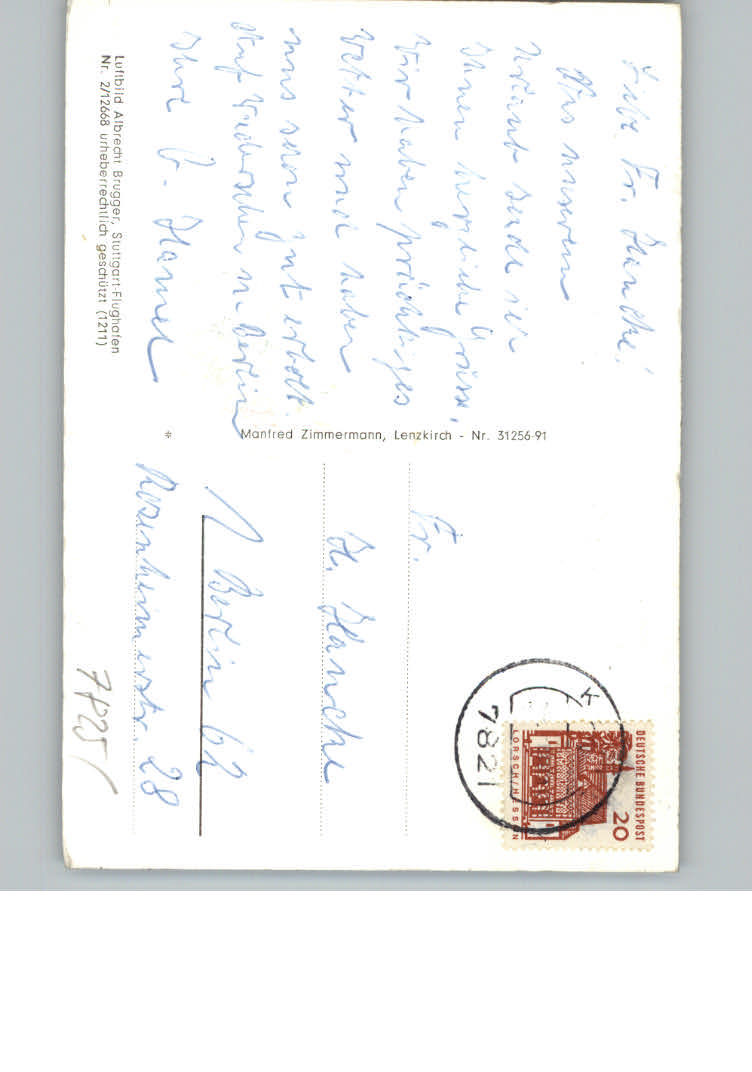 Liebe Fr. Hanche!
Aus unserem
Urlaub sende ich
Ihnen herzliche Grüsse,
Wir haben prächtiges
Wetter und haben
uns schon gut erholt.
Auf Wiedersehen in Berlin
Ihre
Luftbild Albrecht Brugger, Stuttgart-Flughafen
Nr. 2/12668 urheberrechtlich geschützt (1211)
* Manfred Zimmermann, Lenzkirch - Nr. 31256-91
Fr.
H. Hanche
1 Berlin 62
Rosenheimerstr. 28
DEUTSCHE BUNDESPOST
20
LORSCH/HESSEN
7821